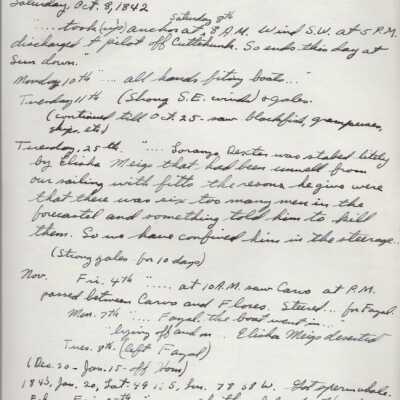 Saturday, Oct. 8, 1842
Saturday 8th
".... took (up) anchor at 8 A.M. Wind S.W. at 5 P.M.
discharged + pilot off Cuttehunk. So ends this day at
Sun down."
Monday 10th ".... all hands fiting boats..."
Tuesday 11th (Strong S.E. winds) + gales.
(continued till Oct. 25 - saw blackfish, grampuses,
ships, etc)
Tuesday, 25th. ".... Lorenzo Dexter was stabed lately
by Elisha Meigs that had been unwell from
our sailing with fitts the resons he gives were
that there was six too many men in the
forecastel and something told him to kill
them. So we have confined him in the steerage..
(Strong gales for 10 days)
Nov. Fri. 4th "..... at 10 A.M. saw Corvo at P.M.
passed between Corvo and Flores. Steered ... for Fayal.
Mon. 7th ".... Fayal, the boat went in...
"lying off and on .. Elisha Meigs deserted
Tues. 8th. (left Fayal)
(Dec. 20 - Jan. 15 - off Horn)
1843, Jan. 20, Lat. 49 S, Lon. 78 W. Got sperm whale.